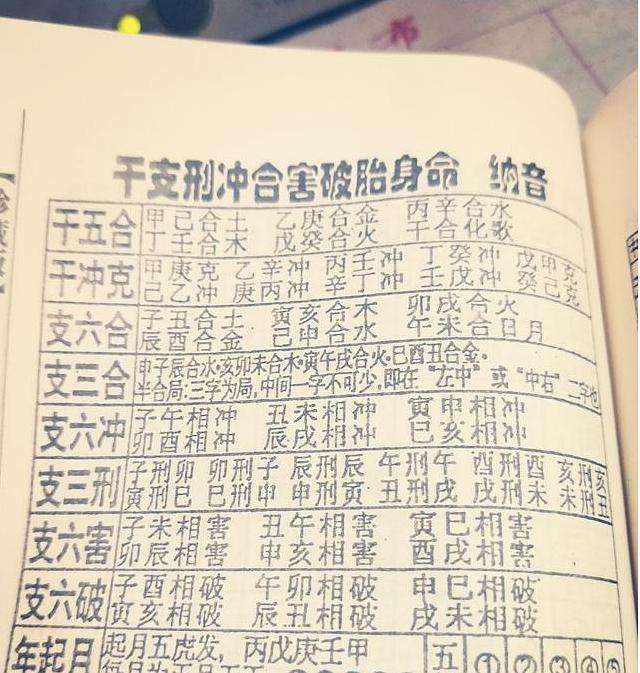 干支刑冲合害破胎身命 纳音
干五合
甲己合土 乙庚合金 丙辛合水
丁壬合木 戊癸合火 干合化歌
干冲克
甲庚克 乙辛冲 丙壬冲 丁癸冲 戊甲克
己乙冲 庚丙冲 辛丁冲 壬戊冲 癸己克
支六合
子丑合土 寅亥合木 卯戌合火
辰酉合金 巳申合水 午未合日月
支三合
申子辰合水·亥卯未合木·寅午戌合火·巳酉丑合金·
半合局:三字为局,中间一字不可少,即在“左中”或“中右”二字也
支六冲
子午相冲 丑未相冲 寅申相冲
卯酉相冲 辰戌相冲 巳亥相冲
支三刑
子刑卯 卯刑子 辰刑辰 午刑午 酉刑酉 亥刑亥
寅刑巳 巳刑申 申刑寅 丑刑戌 戌刑未 未刑丑
支六害
子未相害 丑午相害 寅巳相害
卯辰相害 申亥相害 酉戌相害
支六破
子酉相破 午卯相破 申巳相破
寅亥相破 辰丑相破 戌未相破
年起月
起月五虎发，丙戊庚壬甲
五 ① ② ③ ④ ⑤